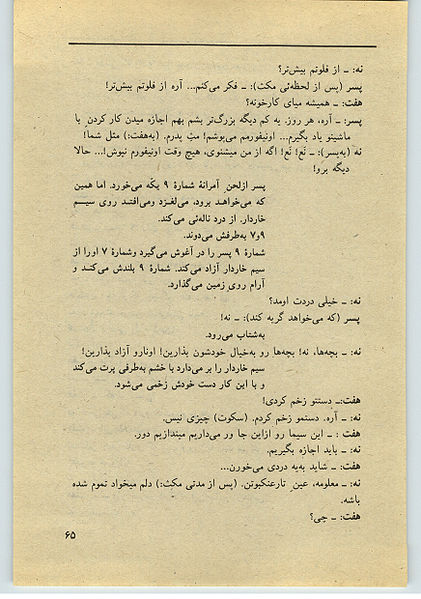 نه: ـ از فلوتم بیش‌تر؟
پسر (پس از لحظه‌ئی مکث): ـ فکر می‌کنم... آره از فلوتم بیش‌تر!
هفت: ـ همیشه میای کارخونه؟
پسر: ـ آره، هر روز. یه کم دیگه بزرگ‌تر بشم بهم اجازه میدن کار کردن با
ماشینو یاد بگیرم... اونیفورمم می‌پوشم! مث پدرم. (به‌هفت:) مثل شما!
نه (به‌پسر): ـ نع! نع! اگه از من میشنوی، هیچ وقت اونیفورم نپوش!... حالا
دیگه برو!
پسر ازلحن آمرانهٔ شمارهٔ ۹ یکّه می‌خورد. اما همین
که می‌خواهد برود، می‌لغزد ومی‌افتد روی سیم
خاردار. از درد ناله‌ئی می‌کند.
۷و۹ به‌طرفش می‌دوند.
شمارهٔ ۹ پسر را در آغوش می‌گیرد وشمارهٔ ۷ اورا از
سیم خاردار آزاد می‌کند. شمارهٔ ۹ بلندش می‌کند و
آرام روی زمین می‌گذارد.
نه: ـ خیلی دردت اومد؟
پسر (که می‌خواهد گریه کند): ـ نه!
به‌شتاب می‌رود.
نه: ـ بچه‌ها، نه! بچه‌ها رو به‌خیال خودشون بذارین! اونارو آزاد بذارین!
سیم خاردار را بر می‌دارد با خشم به‌طرفی پرت می‌کند
و با این کار دست خودش زخمی می‌شود.
هفت: ـ دستتو زخم کردی!
نه: ـ آره. دستمو زخم کردم. (سکوت) چیزی نیس.
هفت : ـ این سیما رو ازاین جا ور می‌داریم میندازیم دور.
نه: ـ باید اجازه بگیریم.
هفت: ـ شاید به‌یه دردی می‌خورن...
نه: ـ معلومه، عین تارعنکبوتن. (پس از مدتی مکث:) دلم میخواد تموم شده
باشه.
هفت: ـ چی؟
۶۵